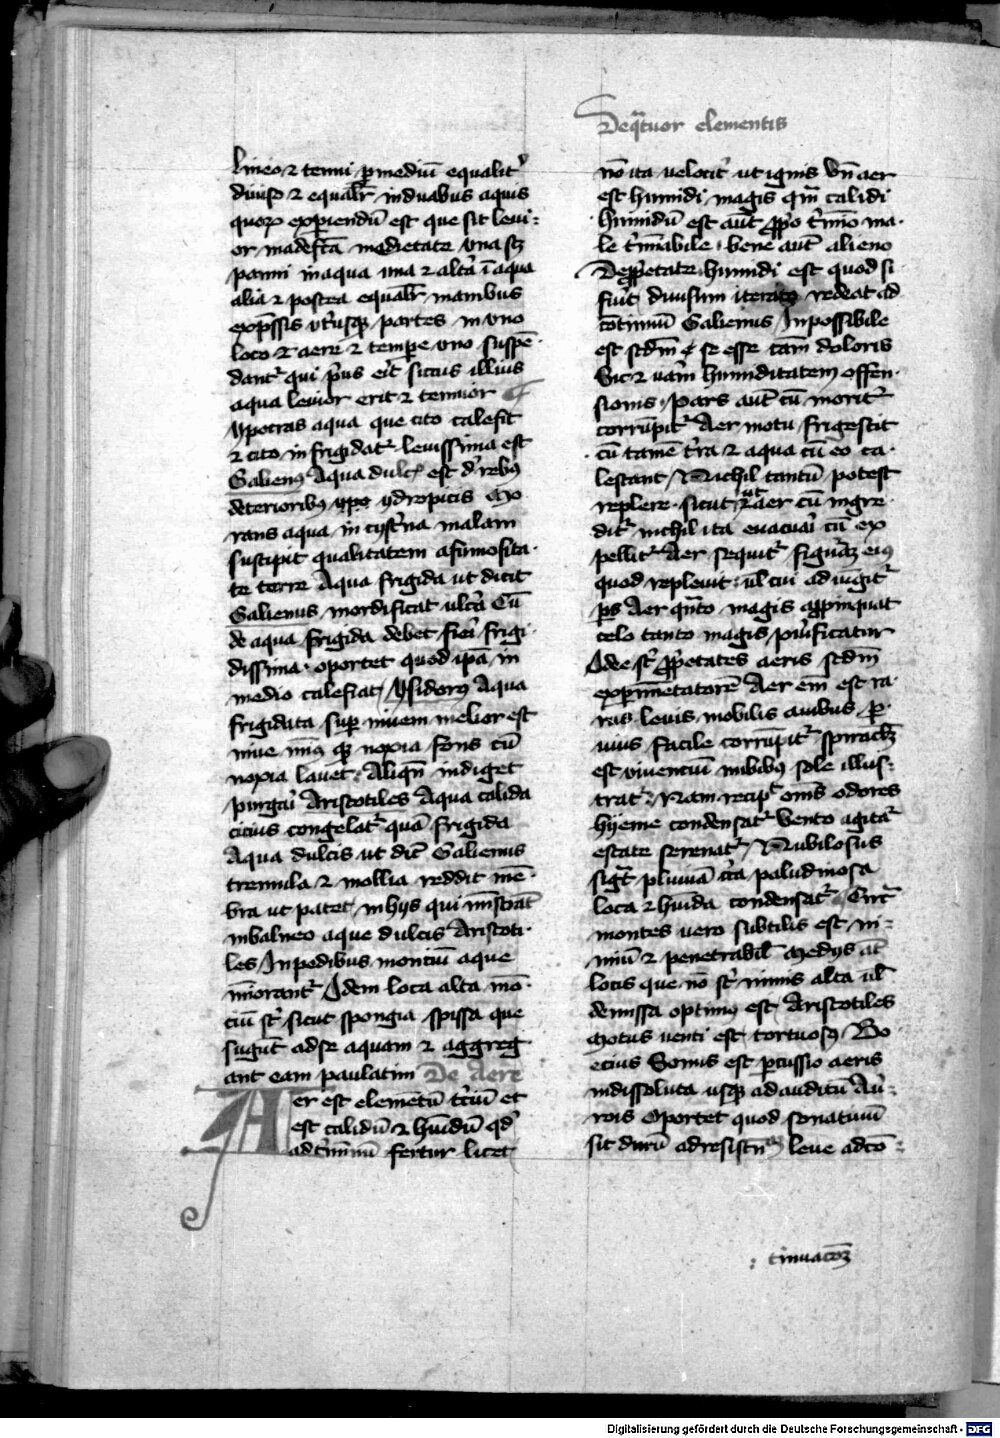 De q̄tuor elementis
lineo ⁊ tenui p̱ mediū equalit᷑
diuiso ⁊ equalr̄ in duabus aquis
quoꝝ experiendū est que sit leui⸗
or madefc̄a medietate vna sꝫ
panni in aqua vna ⁊ alt̄a ī aqua
alia ⁊ postea equalr̄ manibus
exp̄ssis vt̓usqꝫ partes in vno
loco ⁊ aere ⁊ tempe vno suspē⸗
dant᷑ qui p̓us er̓it siccus illius
aqua leuior erit ⁊ tenuior
ypocras aqua que cito calefit
⁊ cito infrigidat᷑ leuissima est
Galienꝯ Aqua dulc̄ est d̓ rebꝯ
deterioribꝯ ypo ydropicis
rans aqua in cyst̓na malam
suscipit qualitatem a fumosita⸗
te terre Aqua frigida ut dicit
Galienus mordificat ulc̓a Cū
de aqua frigida debet fieri frigi⸗
dissima oportet quod ip̄a in
medio calefiat ysidorꝯ Aqua
frigidata sup̱ niuem melior est
niue minꝯ qꝫ noxia fons cū
noxia lauet Aliqn̄ indiget
purgari Aristotiles Aqua calida
cicius congelat᷑ quā frigida
Aqua dulcis ut dic̄ Galienus
tremula ⁊ mollia reddit mē⸗
bra ut patet in hys qui
in balneo aque dulcis Aristoti⸗
les In pedibus montiū aque
morant᷑ Idem loca alta mō⸗
ciū st̄ sicut spongia spissa que
sugūt ad se aquam ⁊ aggreg
ant eam paulatim De Aere
Aer est elemetū t̓ciū et
est calidū ⁊ hūidū qd̓
ad t̓minū fertur licet
nō ita velocit᷑ ut ignis vn̄ aer
est humidi magis qm̄ calidi
humidū est aut̄ p̱p̓o t̓mīo ma⸗
le t̓minabile bene aut̄ alieno
De p̱p̓etate humidi est quod si
fuit̓ diuisum iterato redeat ad
cōtinuū Galienus Inpossibile
est scdm̄ se esse cām doloris
Sic ⁊ uām humiditatem offen⸗
sionis Pars aut̄ cū morit᷑
corrūpit᷑ Aer motu frigescit
cū tamē t̓ra ⁊ aqua cū eo ca⸗
lescant Nichil tantū potest
replere sicut ut aer cū ingre⸗
dit᷑ nichil ita euacuar̓i cū ex
pellit᷑ Aer sequit᷑ figuraꝫ eiꝯ
quod repleuit ul̄ cui adiūgit᷑
p̱s Aer qn̄to magis app̱inquat
celo tanto magis purificatur
Idee st̄ p̱p̓etates aeris scdm̄
exp̱imētatorē Aer em̄ est ra⸗
rus leuis mobilis auibus p̱⸗
uius facile corrūpit᷑ spiraclꝫ
est viuenciū nubibꝯ sole illus⸗
trat᷑ Nam recip᷑ om̄s odores
hyeme condensat᷑ Vento agitat᷑
estate serenat᷑ Nubilosus
sigt̄ pluuiā circa paludinosa
loca ⁊ huīda condensat᷑ Circa
montes uero subtilis est ni⸗
miū ⁊ penetrabil̄ Medys at̄
locis que nō st̄ nimis alta ul̄
demissa optimꝯ est Aristotiles
Motus venti est tortuosꝯ Bo
ecius Sonus est p̱cussio aeris
indissoluta usqꝫ ad auditū Au⸗
rois Oportet quod sonatiuū
sit durū ad resistn̄ leue ad cō⸗
: tinuacōꝫ
Digitalisierung gefördert durch die Deutsche Forschungsgemeinschaft - DFG